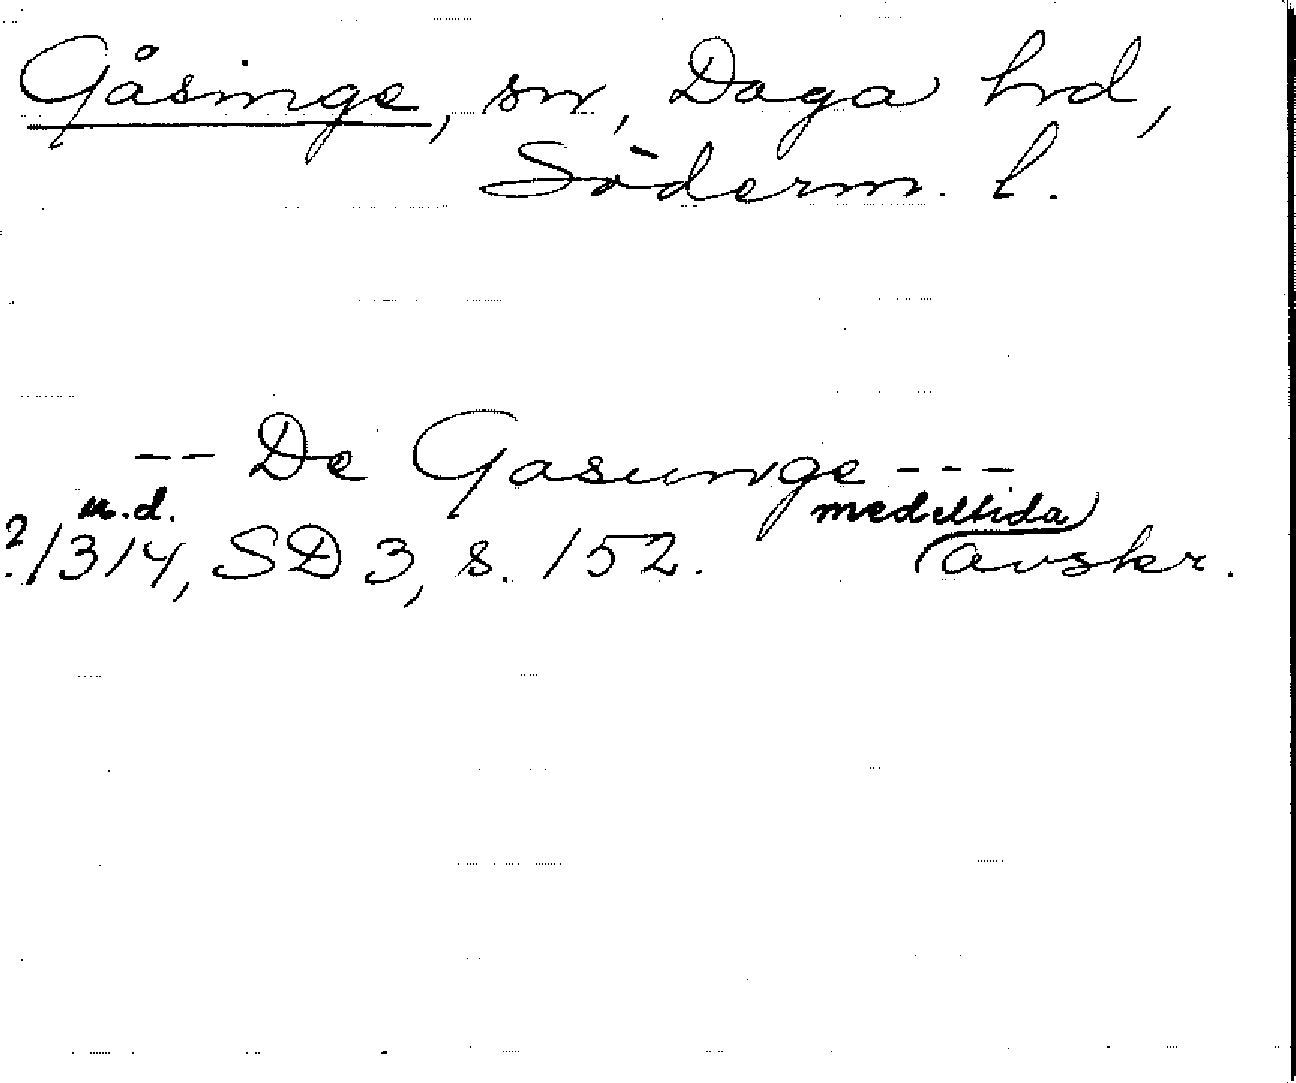 Gåsinge, sn, Daga hrd,
Söderm. l.
-- De Gasunge ---
u.d. medeltida
?/1314, SD 3, s. 152. avskr.